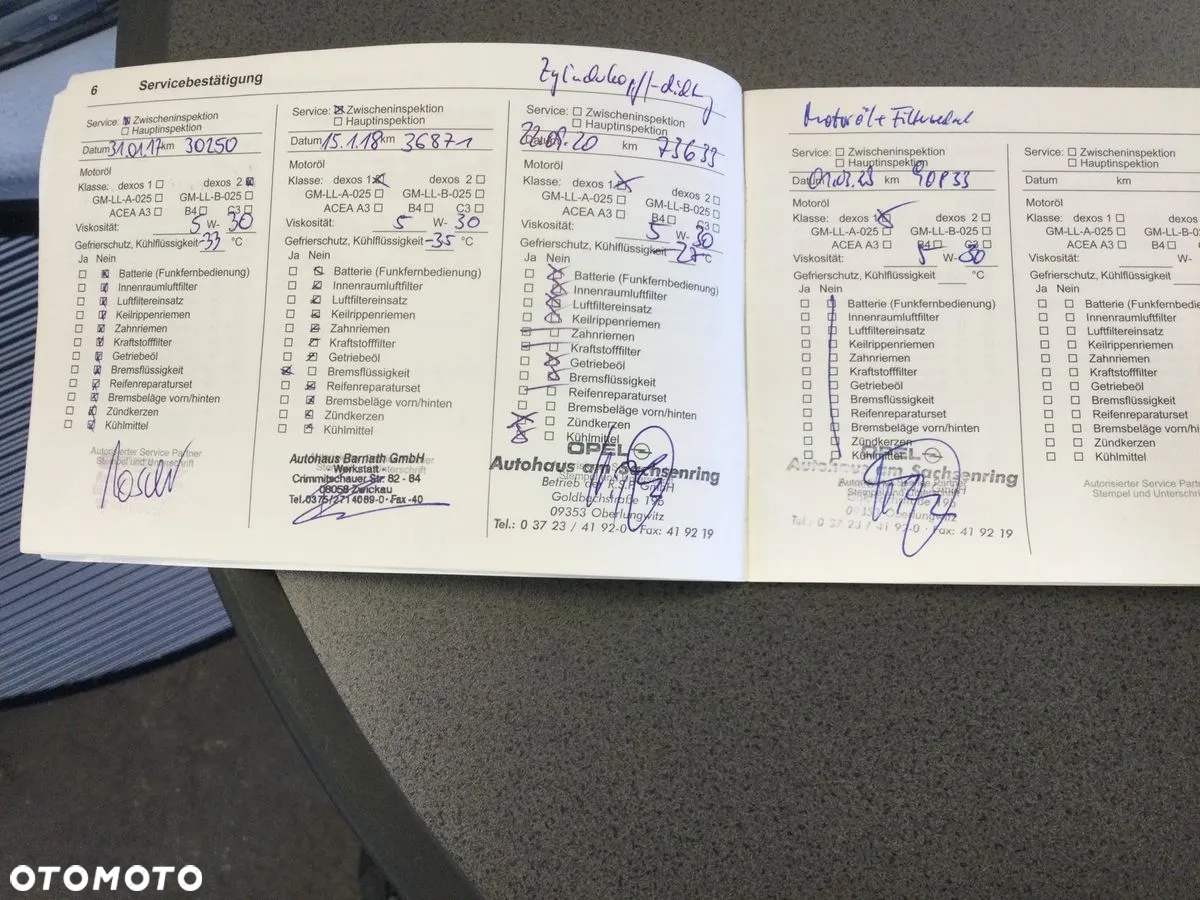 6 Servicebestätigung
Service: Zwischeninspektion
Hauptinspektion
Datum 31.01.17 km 30250
Motoröl
Klasse: dexos 1 dexos 2
GM-LL-A-025 GM-LL-B-025
ACEA A3 B4 C3
Viskosität: 5 W- 30
Gefrierschutz, Kühlflüssigkeit -33 °C
Ja Nein
Batterie (Funkfernbedienung)
Innenraumluftfilter
Luftfiltereinsatz
Keilrippenriemen
Zahnriemen
Kraftstofffilter
Getriebeöl
Bremsflüssigkeit
Reifenreparaturset
Bremsbeläge vorn/hinten
Zündkerzen
Kühlmittel
Autorisierter Service Partner
Stempel und Unterschrift
Service: Zwischeninspektion
Hauptinspektion
Datum 15.1.18 km 36871
Motoröl
Klasse: dexos 1 dexos 2
GM-LL-A-025 GM-LL-B-025
ACEA A3 B4 C3
Viskosität: 5 W- 30
Gefrierschutz, Kühlflüssigkeit -35 °C
Ja Nein
Batterie (Funkfernbedienung)
Innenraumluftfilter
Luftfiltereinsatz
Keilrippenriemen
Zahnriemen
Kraftstofffilter
Getriebeöl
Bremsflüssigkeit
Reifenreparaturset
Bremsbeläge vorn/hinten
Zündkerzen
Kühlmittel
Autohaus Barnath GmbH
Werkstatt
Crimmitschauer Str. 82 - 84
08058 Zwickau
Tel. 0375/2714089-0 · Fax -40
Zylinderkopf-dichtung
Service: Zwischeninspektion
Hauptinspektion
Datum 20 km 73633
Motoröl
Klasse: dexos 1 dexos 2
GM-LL-A-025 GM-LL-B-025
ACEA A3 B4 C3
Viskosität: 5 W- 30
Gefrierschutz, Kühlflüssigkeit °C
Ja Nein
Batterie (Funkfernbedienung)
Innenraumluftfilter
Luftfiltereinsatz
Keilrippenriemen
Zahnriemen
Kraftstofffilter
Getriebeöl
Bremsflüssigkeit
Reifenreparaturset
Bremsbeläge vorn/hinten
Zündkerzen
Kühlmittel
OPEL
Autohaus am Sachsenring
Betrieb der R.S. GmbH
Goldbachstraße 19b
09353 Oberlungwitz
Tel.: 0 37 23 / 41 92-0 · Fax: 41 92 19
Motoröl+
Service: Zwischeninspektion
Hauptinspektion
Datum km
Motoröl
Klasse: dexos 1 dexos 2
GM-LL-A-025 GM-LL-B-025
ACEA A3 B4 C3
Viskosität: 5 W- 30
Gefrierschutz, Kühlflüssigkeit °C
Ja Nein
Batterie (Funkfernbedienung)
Innenraumluftfilter
Luftfiltereinsatz
Keilrippenriemen
Zahnriemen
Kraftstofffilter
Getriebeöl
Bremsflüssigkeit
Reifenreparaturset
Bremsbeläge vorn/hinten
Zündkerzen
Kühlmittel
OPEL
Autohaus am Sachsenring
09353 Oberlungwitz
Tel.: 0 37 23 / 41 92-0 · Fax: 41 92 19
Service: Zwischeninspektion
Hauptinspektion
Datum km
Motoröl
Klasse: dexos 1
GM-LL-A-025 GM-LL-B-02
ACEA A3 B4 C
Viskosität: W-
Gefrierschutz, Kühlflüssigkeit
Ja Nein
Batterie (Funkfernbedie
Innenraumluftfilter
Luftfiltereinsatz
Keilrippenriemen
Zahnriemen
Kraftstofffilter
Getriebeöl
Bremsflüssigkeit
Reifenreparaturset
Bremsbeläge vorn/hin
Zündkerzen
Kühlmittel
Autorisierter Service Part
Stempel und Unterschri
OTOMOTO